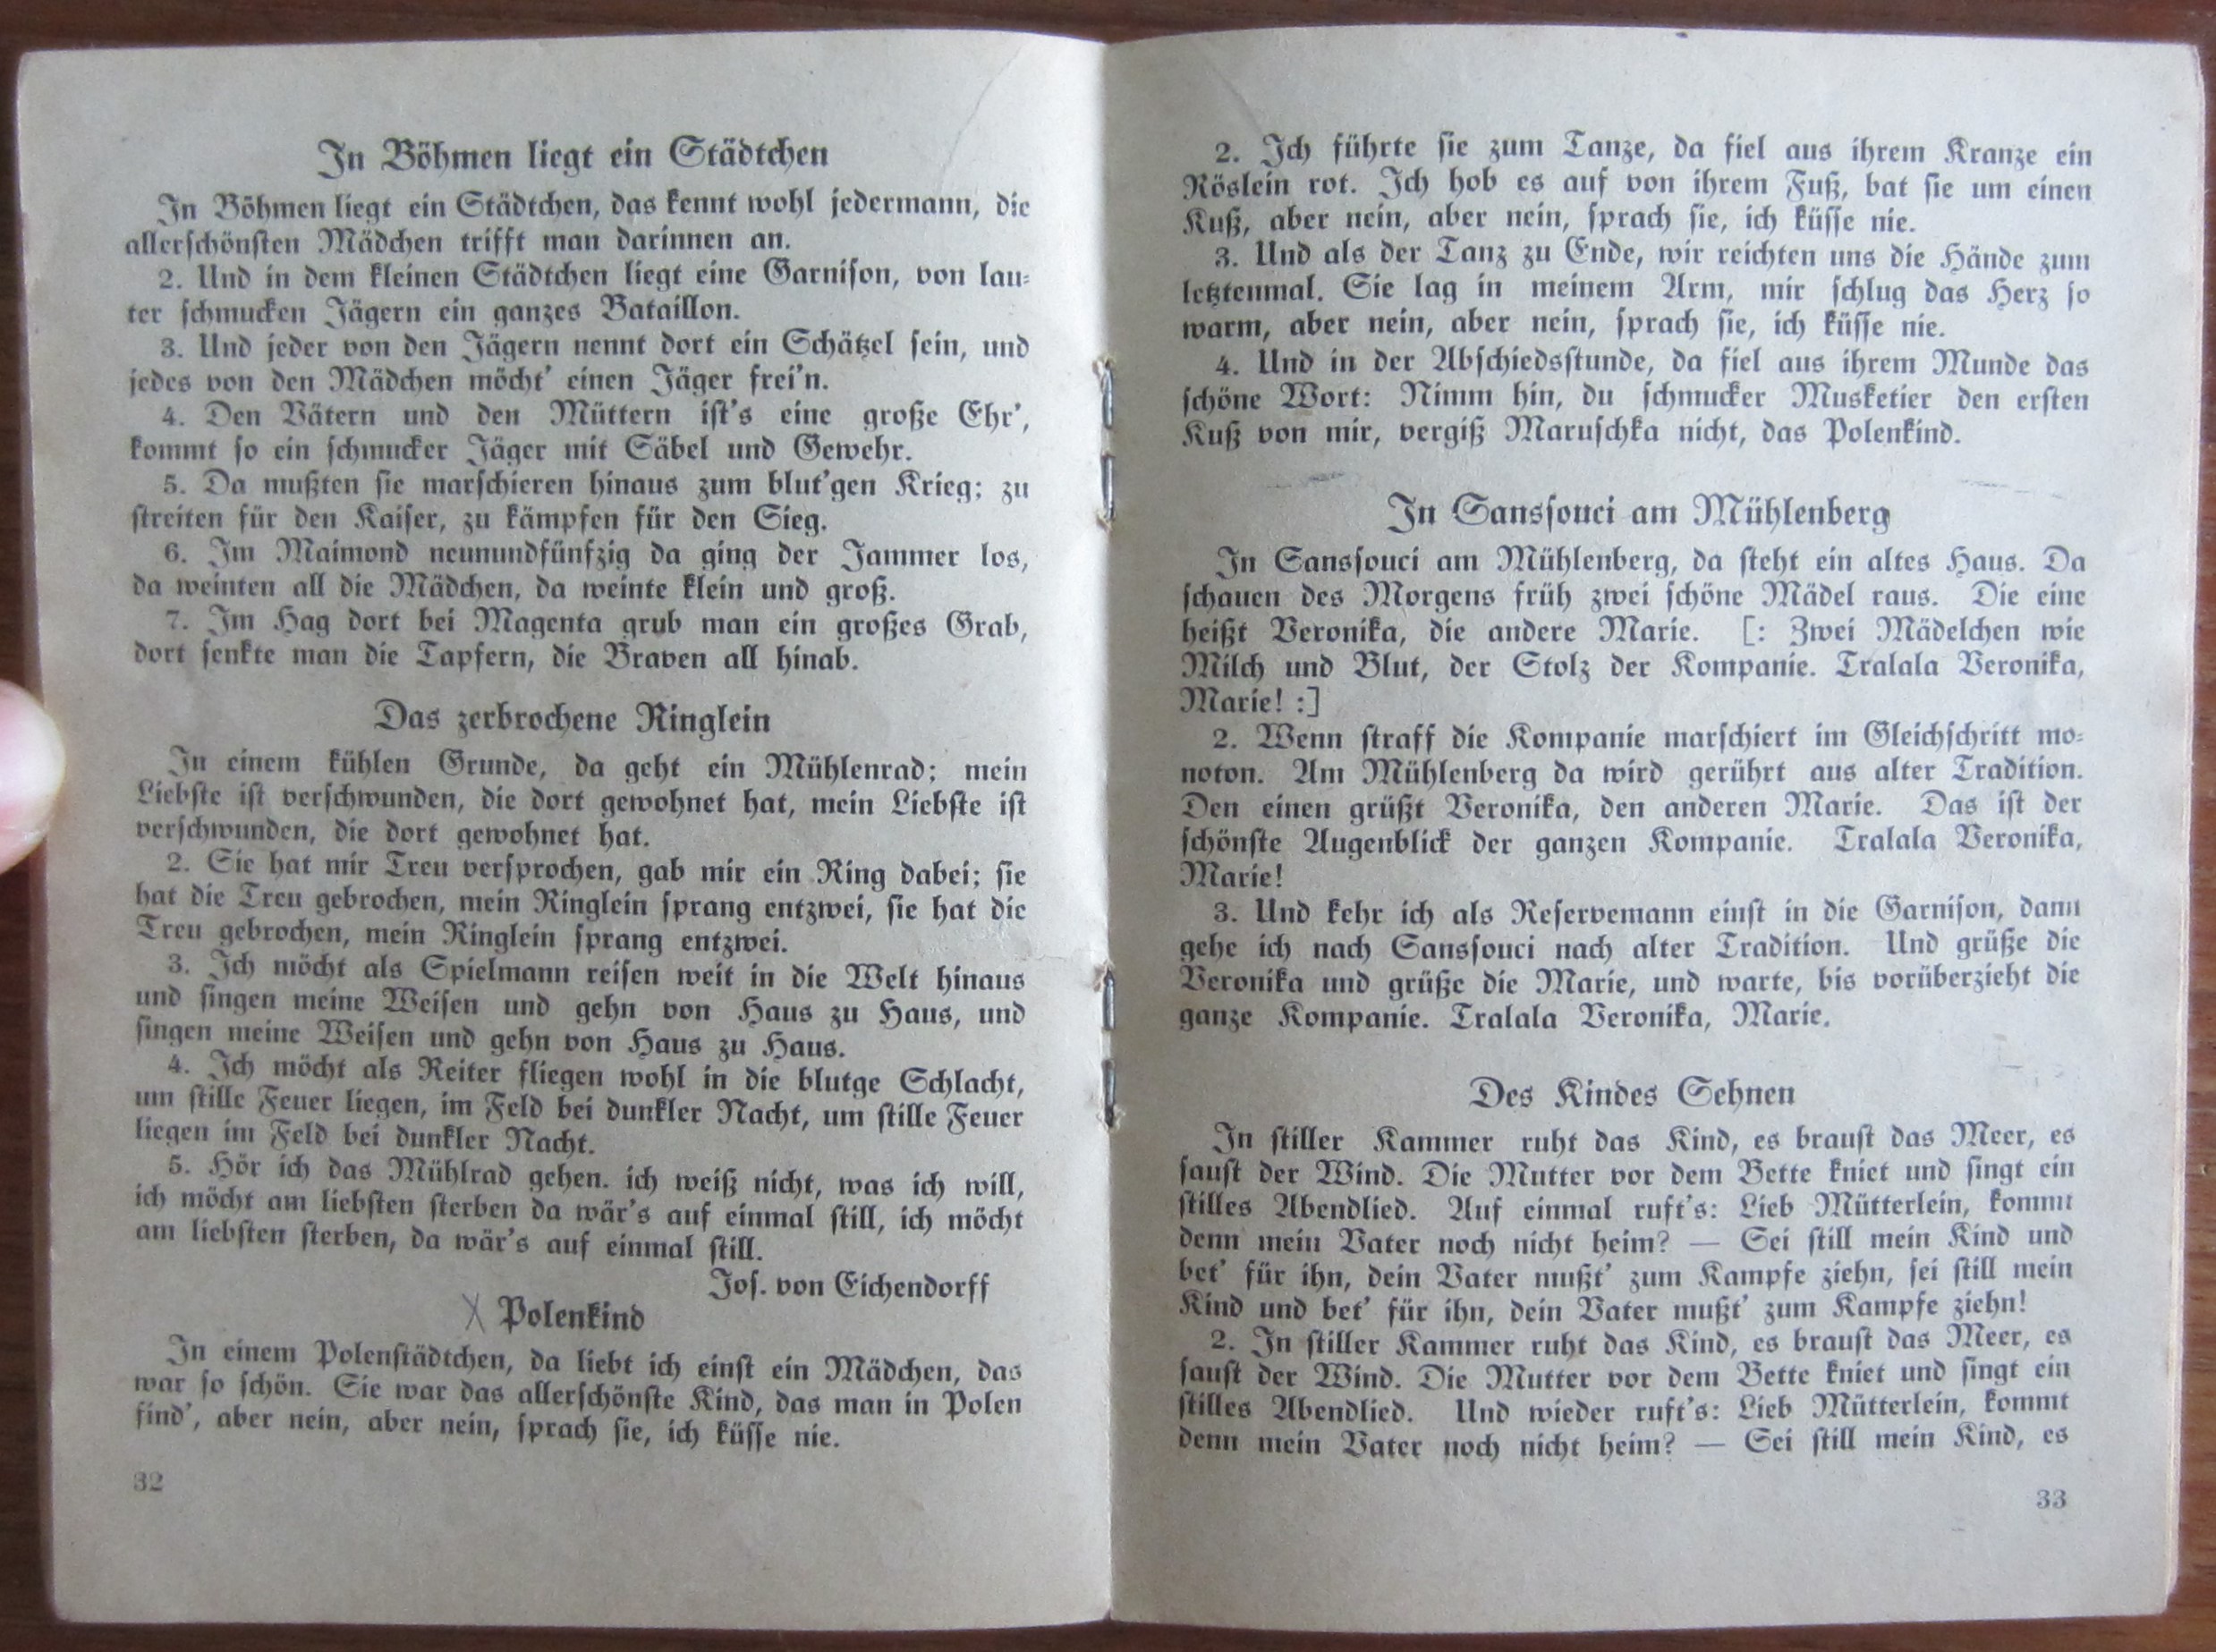 In Böhmen liegt ein Städtchen
In Böhmen liegt ein Städtchen, das kennt wohl jedermann, die
allerschönsten Mädchen trifft man darinnen an.
2. Und in dem kleinen Städtchen liegt eine Garnison, von lau-
ter schmucken Jägern ein ganzes Bataillon.
3. Und jeder von den Jägern nennt dort ein Schätzel sein, und
jedes von den Mädchen möcht' einen Jäger frei'n.
4. Den Vätern und den Müttern ist's eine große Ehr',
kommt so ein schmucker Jäger mit Säbel und Gewehr.
5. Da mußten sie marschieren hinaus zum blut'gen Krieg; zu
streiten für den Kaiser, zu kämpfen für den Sieg.
6. Im Maimond neunundfünfzig da ging der Jammer los,
da weinten all die Mädchen, da weinte klein und groß.
7. Im Hag dort bei Magenta grub man ein großes Grab,
dort senkte man die Tapfern, die Braven all hinab.
Das zerbrochene Ringlein
In einem kühlen Grunde, da geht ein Mühlenrad; mein
Liebste ist verschwunden, die dort gewohnet hat, mein Liebste ist
verschwunden, die dort gewohnet hat.
2. Sie hat mir Treu versprochen, gab mir ein Ring dabei; sie
hat die Treu gebrochen, mein Ringlein sprang entzwei, sie hat die
Treu gebrochen, mein Ringlein sprang entzwei.
3. Ich möcht als Spielmann reisen weit in die Welt hinaus
und singen meine Weisen und gehn von Haus zu Haus, und
singen meine Weisen und gehn von Haus zu Haus.
4. Ich möcht als Reiter fliegen wohl in die blutge Schlacht,
um stille Feuer liegen, im Feld bei dunkler Nacht, um stille Feuer
liegen im Feld bei dunkler Nacht.
5. Hör ich das Mühlrad gehen. ich weiß nicht, was ich will,
ich möcht am liebsten sterben da wär's auf einmal still, ich möcht
am liebsten sterben, da wär's auf einmal still.
Jos. von Eichendorff
X Polenkind
In einem Polenstädtchen, da liebt ich einst ein Mädchen, das
war so schön. Sie war das allerschönste Kind, das man in Polen
find', aber nein, aber nein, sprach sie, ich küsse nie.
32
2. Ich führte sie zum Tanze, da fiel aus ihrem Kranze ein
Röslein rot. Ich hob es auf von ihrem Fuß, bat sie um einen
Kuß, aber nein, aber nein, sprach sie, ich küsse nie.
3. Und als der Tanz zu Ende, wir reichten uns die Hände zum
letztenmal. Sie lag in meinem Arm, mir schlug das Herz so
warm, aber nein, aber nein, sprach sie, ich küsse nie.
4. Und in der Abschiedsstunde, da fiel aus ihrem Munde das
schöne Wort: Nimm hin, du schmucker Musketier den ersten
Kuß von mir, vergiß Maruschka nicht, das Polenkind.
In Sanssouci am Mühlenberg
In Sanssouci am Mühlenberg, da steht ein altes Haus. Da
schauen des Morgens früh zwei schöne Mädel raus. Die eine
heißt Veronika, die andere Marie. [: Zwei Mädelchen wie
Milch und Blut, der Stolz der Kompanie. Tralala Veronika,
Marie! :]
2. Wenn straff die Kompanie marschiert im Gleichschritt mo-
noton. Am Mühlenberg da wird gerührt aus alter Tradition.
Den einen grüßt Veronika, den anderen Marie. Das ist der
schönste Augenblick der ganzen Kompanie. Tralala Veronika,
Marie!
3. Und kehr ich als Reservemann einst in die Garnison, dann
gehe ich nach Sanssouci nach alter Tradition. Und grüße die
Veronika und grüße die Marie, und warte, bis vorüberzieht die
ganze Kompanie. Tralala Veronika, Marie.
Des Kindes Sehnen
In stiller Kammer ruht das Kind, es braust das Meer, es
saust der Wind. Die Mutter vor dem Bette kniet und singt ein
stilles Abendlied. Auf einmal ruft's: Lieb Mütterlein, kommt
denn mein Vater noch nicht heim? — Sei still mein Kind und
bet' für ihn, dein Vater mußt' zum Kampfe ziehn, sei still mein
Kind und bet' für ihn, dein Vater mußt' zum Kampfe ziehn!
2. In stiller Kammer ruht das Kind, es braust das Meer, es
saust der Wind. Die Mutter vor dem Bette kniet und singt ein
stilles Abendlied. Und wieder ruft's: Lieb Mütterlein, kommt
denn mein Vater noch nicht heim? — Sei still mein Kind, es
33